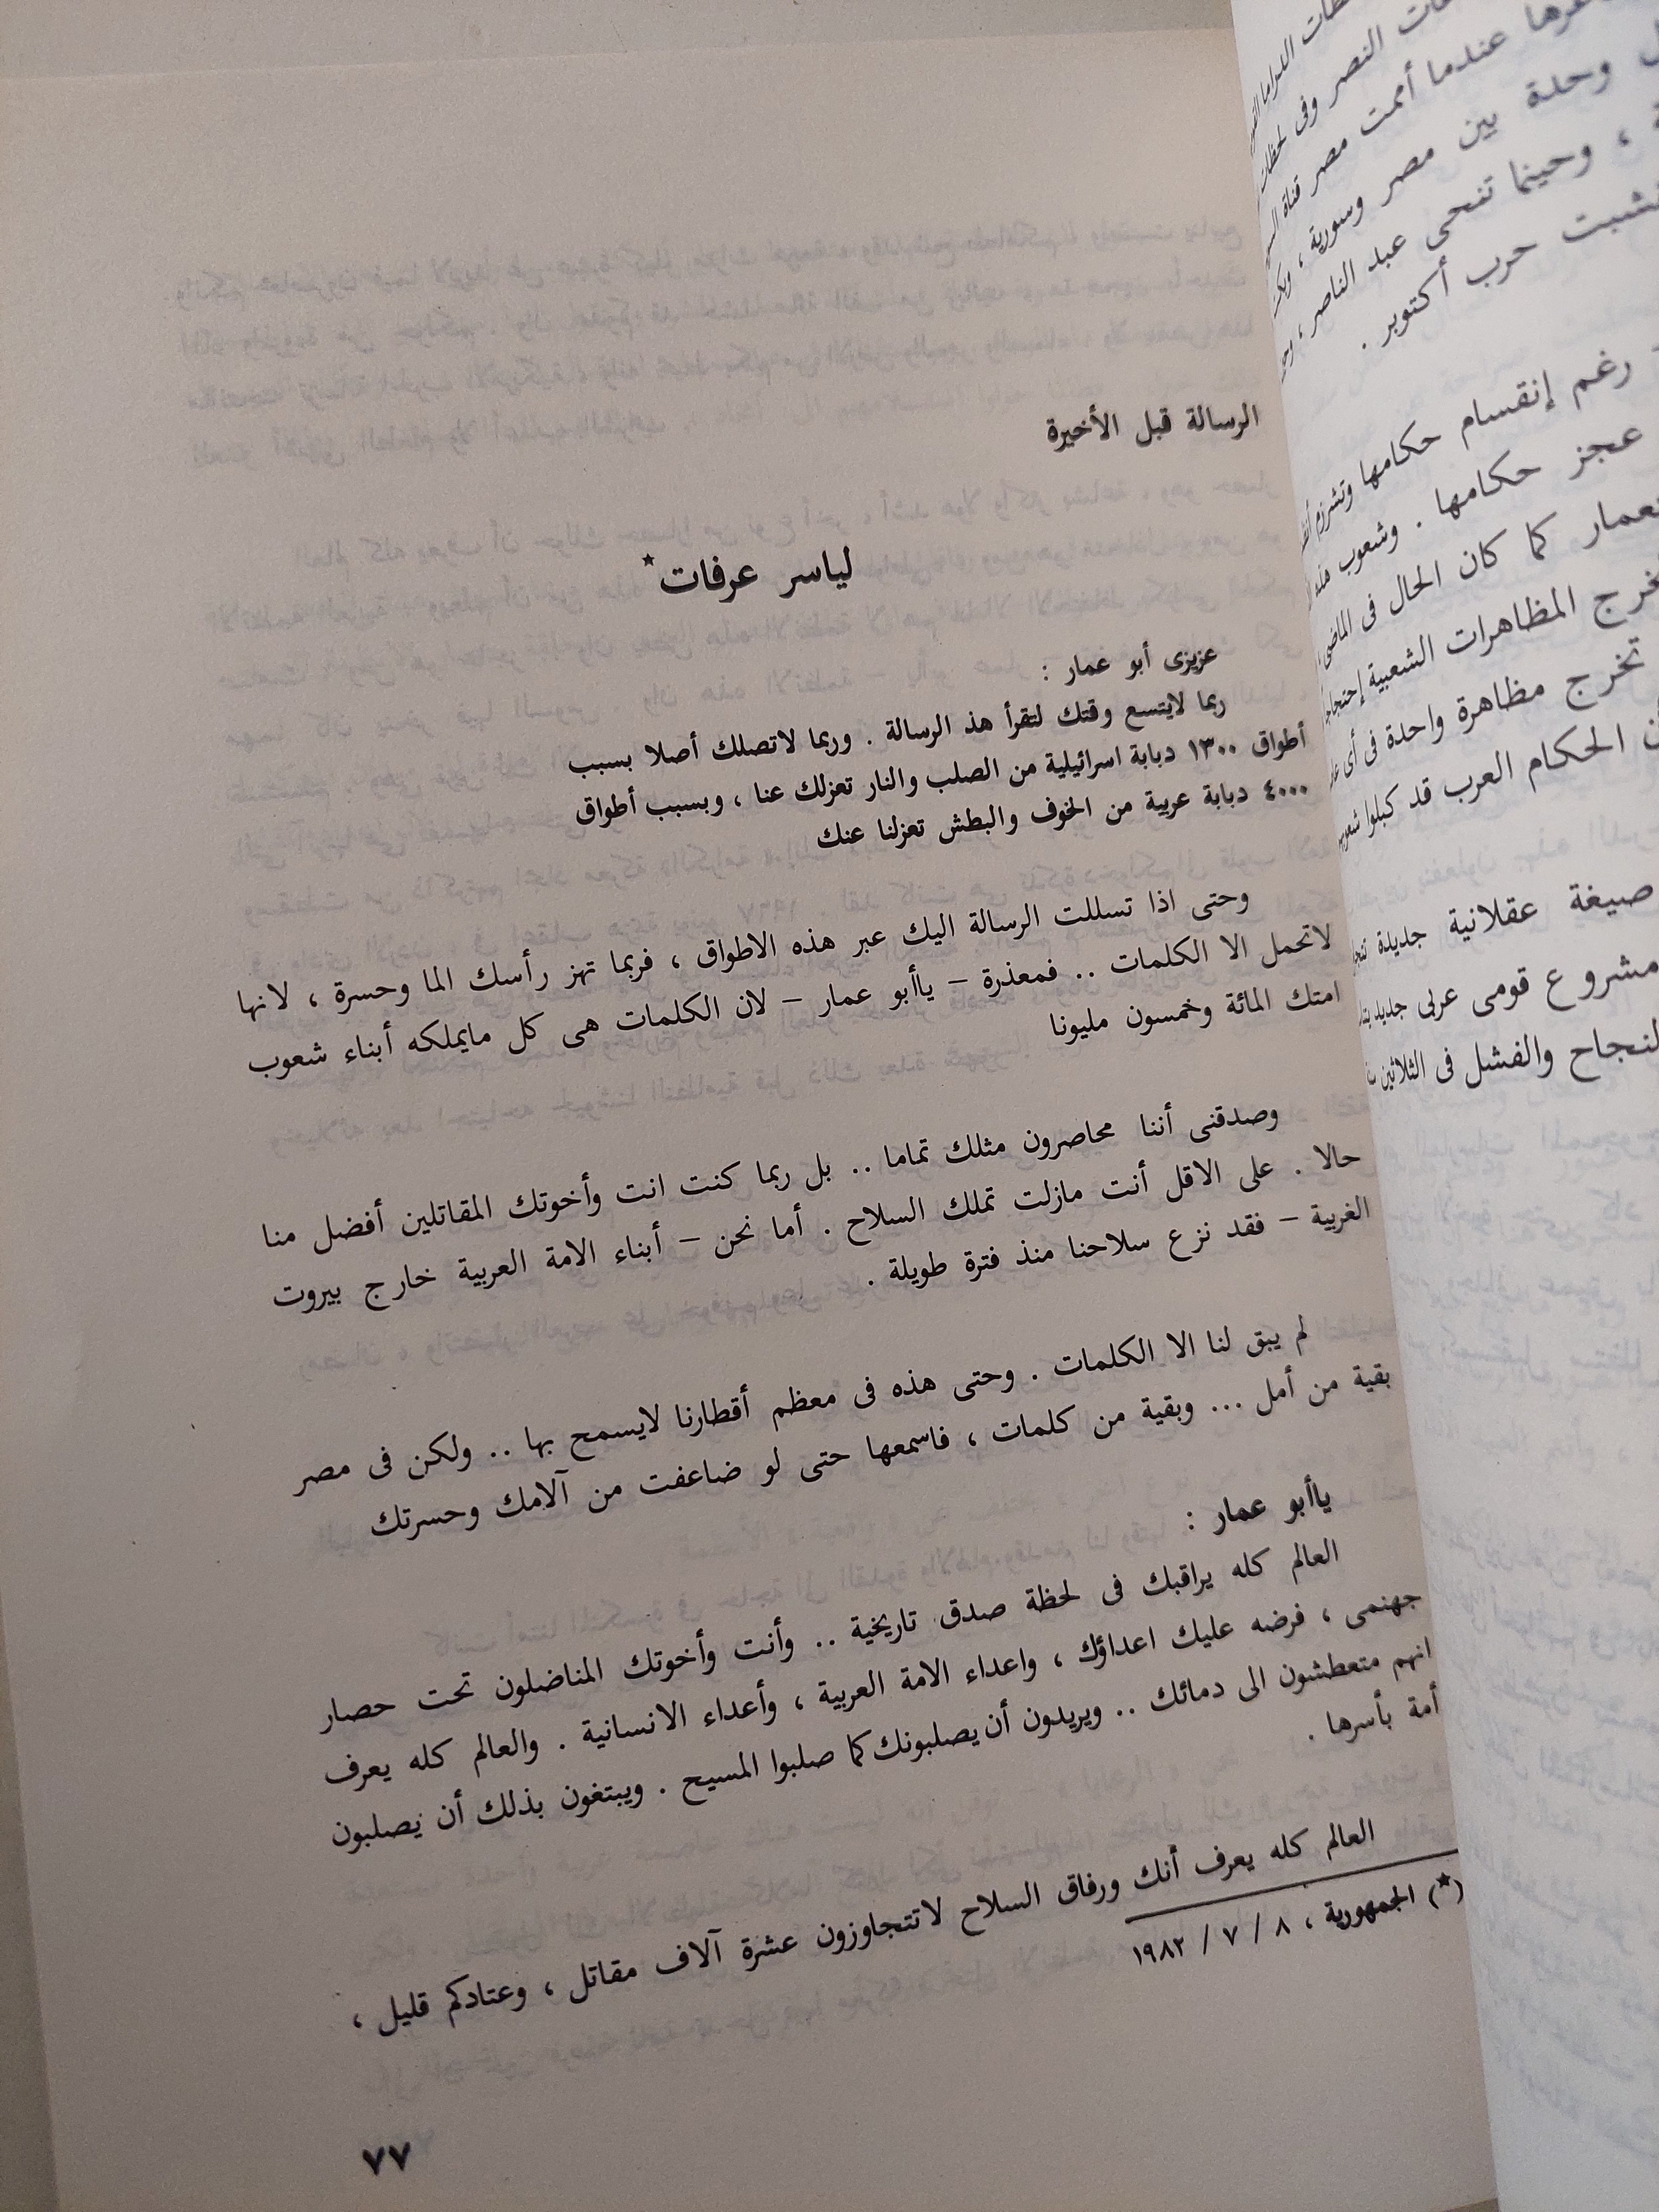 الرسالة قبل الأخيرة
لياسر عرفات*
عزيزى أبو عمار :
ربما لايتسع وقتك لتقرأ هذ الرسالة . وربما لاتصلك أصلا بسبب
أطواق ١٣٠٠ دبابة اسرائيلية من الصلب والنار تعزلك عنا ، وبسبب أطواق
٤٠٠٠ دبابة عربية من الخوف والبطش تعزلنا عنك
وحتى اذا تسللت الرسالة اليك عبر هذه الاطواق ، فربما تهز رأسك الما وحسرة ، لانها
لاتحمل الا الكلمات .. فمعذرة – ياأبو عمار – لان الكلمات هى كل مايملكه أبناء شعوب
امتك المائة وخمسون مليونا
وصدقنى أننا محاصرون مثلك تماما .. بل ربما كنت انت وأخوتك المقاتلين أفضل منا
حالا . على الاقل أنت مازلت تملك السلاح . أما نحن – أبناء الامة العربية خارج بيروت
الغربية – فقد نزع سلاحنا منذ فترة طويلة .
لم يبق لنا الا الكلمات . وحتى هذه فى معظم أقطارنا لايسمح بها .. ولكن فى مصر
بقية من أمل ... وبقية من كلمات ، فاسمعها حتى لو ضاعفت من آلامك وحسرتك
ياأبو عمار :
العالم كله يراقبك فى لحظة صدق تاريخية .. وأنت وأخوتك المناضلون تحت حصار
جهنمى ، فرضه عليك اعداؤك ، واعداء الامة العربية ، وأعداء الانسانية . والعالم كله يعرف
انهم متعطشون الى دمائك .. ويريدون أن يصلبونك كما صلبوا المسيح . ويبتغون بذلك أن يصلبون
أمة بأسرها .
العالم كله يعرف أنك ورفاق السلاح لاتتجاوزون عشرة آلاف مقاتل ، وعتادكم قليل ،
(*) الجمهورية ، ٨ / ٧ / ١٩٨٢
٧٧
النصر وفى لحظات
عندما أممت مصر قناة
وحدة بين مصر وسورية ،
، وحينما تنحى عبد الناصر ،
نشبت حرب أكتوبر .
رغم إنقسام حكامها وتشرذم
عجز حكامها . وشعوب هذه
كما كان الحال فى الماضى
المظاهرات الشعبية إحتجاجا
تخرج مظاهرة واحدة فى أى
الحكام العرب قد كبلوا
صيغة عقلانية جديدة
مشروع قومى عربى جديد
والفشل فى الثلاثين